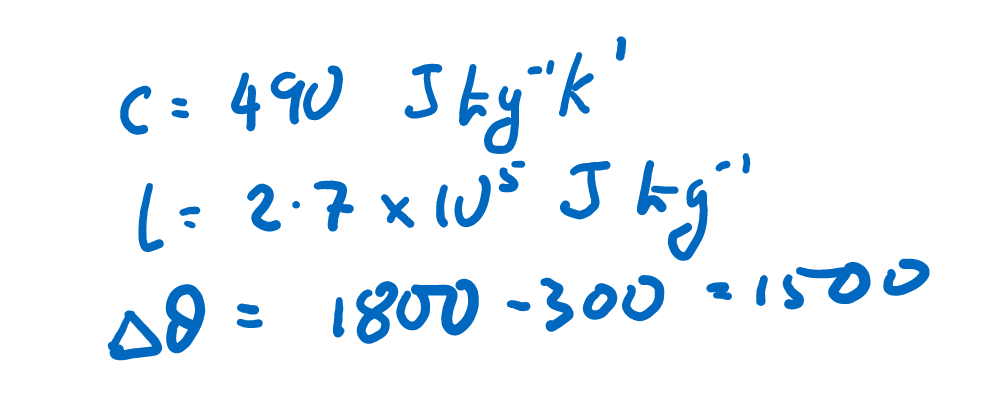 C = 490 J kg⁻¹ K¹
l = 2.7 × 10⁵ J kg⁻¹
Δθ = 1800 - 300 = 1500